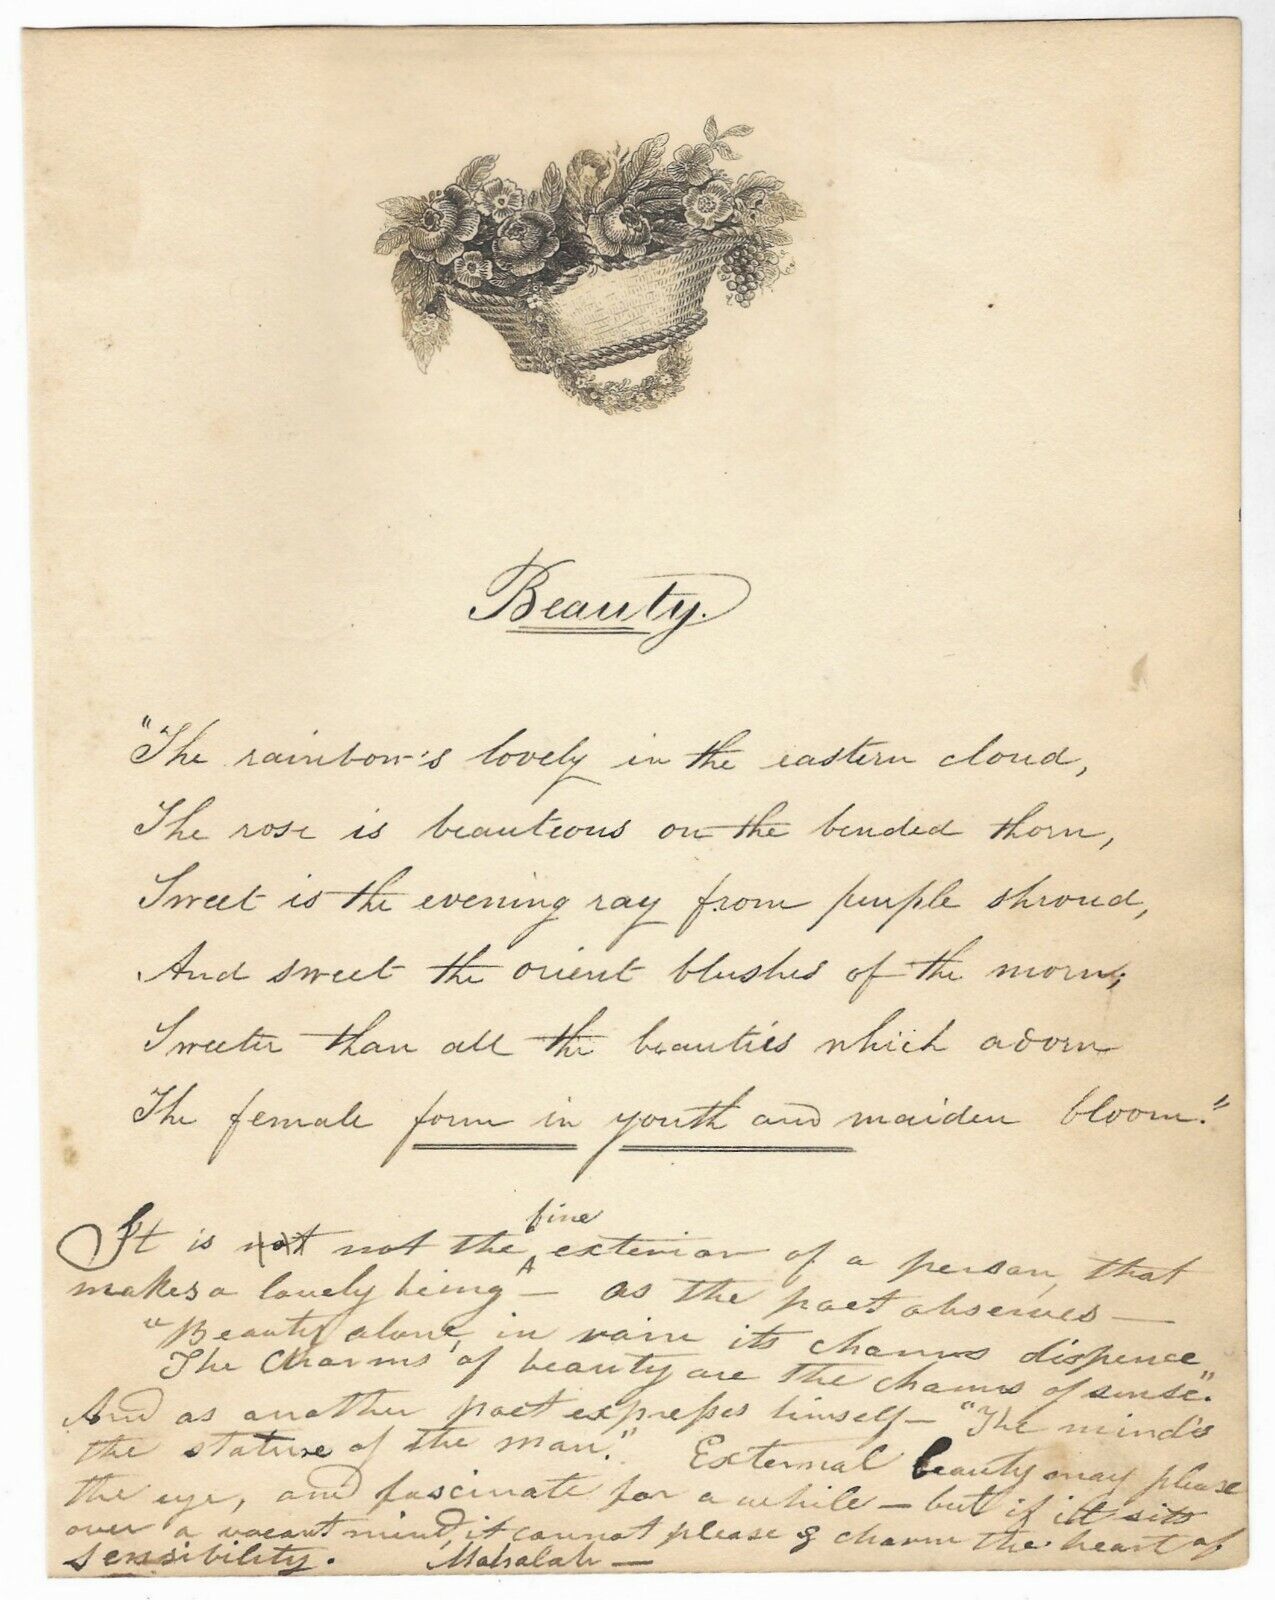 Beauty.
"The rainbow's lovely in the eastern cloud,
The rose is beauteous on the bended thorn,
Sweet is the evening ray from purple shroud,
And sweet the orient blushes of the morn;
Sweeter than all the beauties which adorn
The female form in youth and maiden bloom."
fine
It is not not the ^ exterior of a person, that
makes a lovely being — as the poet observes —
"Beauty alone, in vain its charms dispence
The Charms of beauty are the charms of sense".
And as another poet expresses himself — "The mind's
the stature of the man." External beauty may please
the eye, and fascinate for a while — but if it sits
over a vacant mind, it cannot please & charm the heart of
sensibility. Mahalah —